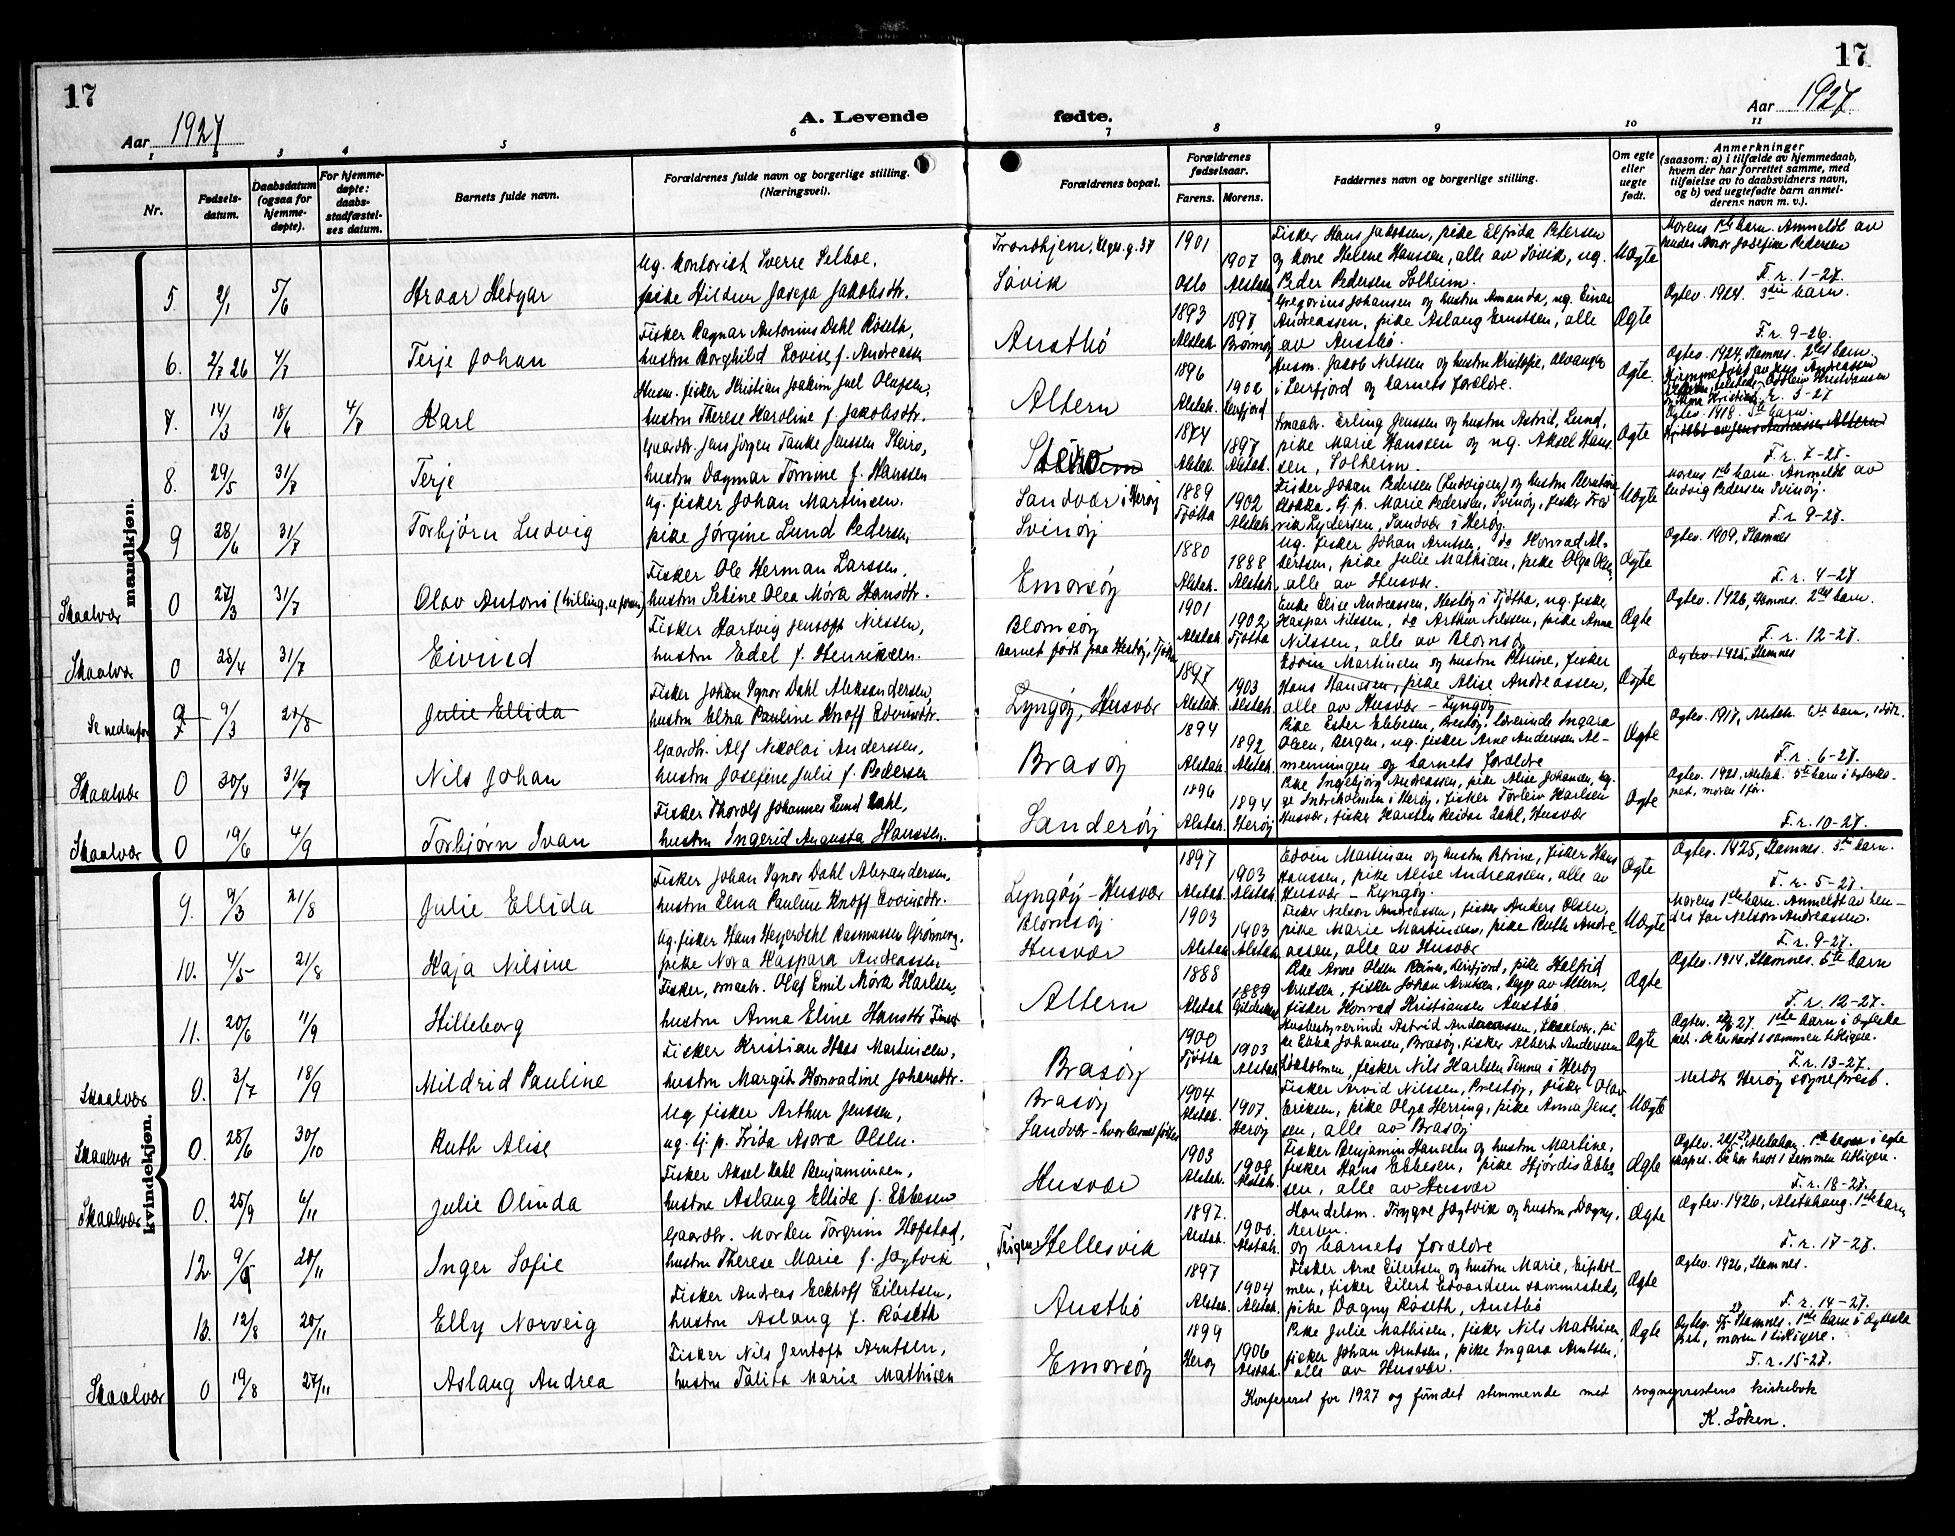 17
Aar 1927
A. Levende
fødte.
17
Aar 1927.
1 2 3 4 5 6 7 8 9 10 11
Nr.
Fødsels-
datum.
Daabsdatum
(ogsaa for
hjemme-
døpte).
For hjemme-
døpte:
daabs-
stadfæstel-
ses datum.
Barnets fulde navn.
Forældrenes fulde navn og borgerlige stilling.
(Næringsvei).
Forældrenes bopæl.
Forældrenes
fødselsaar.
Farens. Morens.
Faddernes navn og borgerlige stilling.
Om egte
eller
uegte
født.
Anmerkninger
(saasom: a) i tilfælde av hjemmedaab,
hvem der har forrettet samme, med
tilføielse av to daabsvidners navn,
og b) ved uegtefødte barn anmel-
derens navn m. v.).
mandkjøn.
5. 2/1 5/6 Hroar Hedgar
Ug. kontorist Sverre Selboe,
pike Hildur Josefa Jakobsdtr.
Trondhjem, Elges.g. 37
Søvik
1901 Oslo 1907 Alstah.
Fisker Hans Jakobsen, pike Elfrida Petersen
og kone Helene Hanssen, alle av Søvik, ug.
Peder Pedersen Solheim.
Uægte
Morens 1ste barn. Anmeldt av
hendes mor Josefine Pedersen
F. r. 1-27.
6. 2/7 26 4/7 Terje Johan
Fisker Ragnar Antonius Dahl Røseth,
hustru Borghild Lovise f. Andreassen
Austbö
1893 Alstah. 1897 Brønnøy
Gregorius Johansen og hustru Amanda, ug. Einar
Andreassen, pike Aslaug Ernstsen, alle
av Austbö.
Ægte
Ægtev. 1924. 3die barn.
F. r. 9-26.
7. 14/3 18/6 4/7 Karl
Husm. fisker Kristian Joakim Juel Olafsen,
hustru Therese Karoline f. Jakobsdtr.
Altern
1896 Alstah. 1902 Leirfjord
Husm. Jacob Nilssen og hustru Kristofie, Alvangen
i Leirfjord og barnets forældre.
Ægte
Ægtev. 1924, Stamnes. 2det barn.
F. r. 3-27
8. 29/5 31/7 Terje
Gaardbr. Jens Jørgen Tanke Janssen Steiro,
hustru Dagmar Tomine f. Hanssen
Steiro
1874 Alstah. 1897 Alstah.
Smaabr. Erling Jenssen og hustru Astrid, Lund,
pike Marie Hanssen og ug. Aksel Hans
sen, Solheim.
Ægte
Ægtev. 1918. 5te barn.
F. r. 7-27.
9 28/6 31/7 Torbjørn Ludvig
Ug. fisker Johan Martinsen.
pike Jørgine Lund Pedersen,
Sandvær i Herøy
Svinöy
1889 Tjøtta 1902 Alstah.
Fisker Johan Pedersen (Ludvigsen) og hustru Berntine
Blokka, tj. p. Marie Pedersen, Svinöy, fisker Fred
rik Lydersen, Sandvær i Herøy.
Uægte
Morens 1ste barn. Anmeldt av
Ludvig Pedersen Svinöy.
F. r. 9-27.
Skaalvær 0 27/3 31/7 Olav Antoni (tvilling, se foran)
Fisker Ole Herman Larssen,
hustru Sebine Olea Möra Hansdtr.
Emorsöy
1880 Alstah. 1888 Alstah.
Ug. fisker Johan Arntsen, do Konrad Al-
bertsen, pike Julie Mathisen, pike Olga Olsen,
alle av Husvær.
Ægte
Ægtev. 1909, Stamnes
F. r. 4-27
Skaalvær 0 28/4 31/7 Eivind
Fisker Hartvig Jentoft Nilssen,
hustru Edel f. Henriksen.
Blomsöy
Barnet født paa Hestøy, Tjøtta
1901 Alstah. 1902 Tjøtta
Enke Elise Andreassen, Hestøy i Tjøtta, ug. fisker
Kaspar Nilssen, do Arthur Nilssen, pike Anna
Nilssen, alle av Blomsöy
Ægte
Ægtev. 1926, Stamnes. 2det barn.
F. r. 12-27.
Se nedenfor 9 9/3 21/8 Julie Ellida
Fisker Johan Ignor Dahl Aleksandersen,
hustru Elna Pauline Knoff Edvinsdtr.
Lyngöy, Husvær
1897 Alstah. 1903 Alstah.
Edvin Martinsen og hustru Petrine, fisker
Hans Hanssen, pike Alise Andreassen,
alle av Husvær - Lyngöy
Ægte
Ægtev. 1925, Stamnes
Skaalvær 0 30/4 31/7 Nils Johan
Gaardbr. Alf Nikolai Anderssen,
hustru Josefine Julie f. Pedersen
Brasöy
1894 Alstah. 1892 Alstah.
Pike Ester Ebbesen, Brasöy, lærerinde Ingara
Olsen, Bergen, ug. fisker Arne Anderssen Al-
menningen og barnets forældre
Ægte
Ægtev. 1917, Alstah. 6te barn, 1 död.
F. r. 6-27.
Skaalvær 0 19/6 4/9 Torbjørn Ivan
Fisker Thorolf Johannes Lund Dahl,
hustru Ingerid Augusta Hanssen.
Sanderöy
1896 Alstah. 1894 Herøy
Pike Ingebjørg Andreassen, pike Alise Johansen, beg-
ge Indreholmen i Herøy, fisker Torleiv Karlsen
Husvær, fisker Karsten Reidar Dahl, Husvær
Ægte
Ægtev. 1921, Alstah. 3die barn i egteska-
pet, moren 1 før.
F. r. 10-27.
kvindekjøn.
9. 9/3 21/8 Julie Ellida
Fisker Johan Ignor Dahl Alexandersen,
hustru Elna Pauline Knoff Edvinsdtr.
Lyngöy - Husvær
1897 Alstah. 1903 Alstah.
Edvin Martinsen og hustru Petrine, fisker Hans
Hanssen, pike Alise Andreassen, alle av
Husvær - Lyngöy.
Ægte
Ægtev. 1925, Stamnes. 3die barn.
F. r. 5-27.
10. 4/5 21/8 Kaja Nilsine
Ug. fisker Hans Heyerdahl Rasmussen Grönning,
pike Nora Kaspara Andreassen
Blomsöy.
Husvær
1903 Alstah. 1903 Alstah.
Fisker Nelson Andreassen, fisker Anders Olsen,
pike Marie Martinsen, pike Ruth Andre-
assen, alle av Husvær
Uægte
Morens 1ste barn. Anmeldt av hen-
des far Nelson Andreassen.
F. r. 9-27.
11. 20/6 11/9 Hilleborg
Fisker, smaabr. Olaf Emil Möra Karlsen,
hustru Anna Eline Hansdtr
Altern
1888 Alstah. 1889 Gildeskaal
Pike Anne Olsen Reines, Leirfjord, pike Halfrid
Arntsen, fisker Johan Arntsen, begge av Altern,
fisker Konrad Kristiansen Austbö
Ægte
Ægtev. 1914, Stamnes. 5te barn
F. r. 12-27.
Skaalvær 0. 3/7 18/9 Mildrid Pauline
Fisker Kristian Haas Martinsen,
hustru Margit Konradine Johansdtr.
Brasöy
1900 Tjøtta 1903 Alstah.
Husbestyrerinde Astrid Andreassen, Skaalvær, pi
ke Ebba Johansen, Brasöy, fisker Albert Anderssen
holmen, fisker Nils Karlsen Tenna i Herøy
Ægte
Ægtev. 27. 1ste barn i egteska
pet. De har havt 1 sammen tidligere.
F. r. 13-27.
Skaalvær 0. 28/6 30/10 Ruth Alise
Ug fisker Arthur Jenssen,
ug. tj. p. Frida Asora Olsen.
Brasöy
Sandvær - hvor barnet födtes
1904 Alstah. 1907 Herøy
Fisker Arvid Nilssen, Prestøy, fisker Olav
Eriksen, pike Olga Herring, pike Anna Jens-
sen, alle av Brasöy
Uægte
Meldt Herøy sogneprest.
Skaalvær 0. 25/9 6/11 Julie Olinda
Fisker Aksel Dahl Benjaminsen,
hustru Aslaug Ellida f. Ebbesen
Husvær
1903 Alstah. 1908 Alstah.
Fisker Benjamin Hansen og hustru Martine,
fisker Hans Ebbesen, pike Hjördis Ebbe
sen, alle av Husvær
Ægte
Ægtev. Alstahaug. 1ste barn i egte
skapet. De har havt 1 sammen tidligere.
F. r. 18-27.
12 9/9 20/11 Inger Sofie
Gaardbr. Morten Torgrim Hofstad,
hustru Therese Marie f. Jagtvik
Teigen Hellesvik
1897. Alstah. 1900. Alstah.
Handelsm. Trygve Jagtvik og hustru, Dagny
og barnets forældre
Ægte
Ægtev. 1926, Alstahaug. 1ste barn
F. r. 17-27.
13. 12/8 20/11 Elly Norveig
Fisker Andreas Eckhoff Eilertsen,
hustru Aslaug f. Röseth
Austbö
1897 Alstah. 1904 Alstah.
Fisker Arne Eilertsen og hustru Marie,
men, fisker Eilert Edvardsen sammesteds,
pike Dagny Röseth, Austbö
Ægte
Ægtev. 1926, Stamnes.
F. r. 14-27.
Skaalvær 0 19/8 27/11 Aslaug Andrea
Fisker Nils Jentoft Arntsen,
hustru Talita Marie Mathisen
Emorsöy
1899 Herøy 1906 Alstah.
Pike Julie Mathisen, fisker Nils Mathisen,
fisker Johan Arntsen, pike Ingara Arntsen,
alle av Husvær.
Ægte
Ægtev. Stamnes. 1ste barn i egteska
pet, moren 1 tidligere.
F. r. 15-27.
Konfereret for 1927 og fundet stemmende med sogneprestens kirkebok
K. Löken.